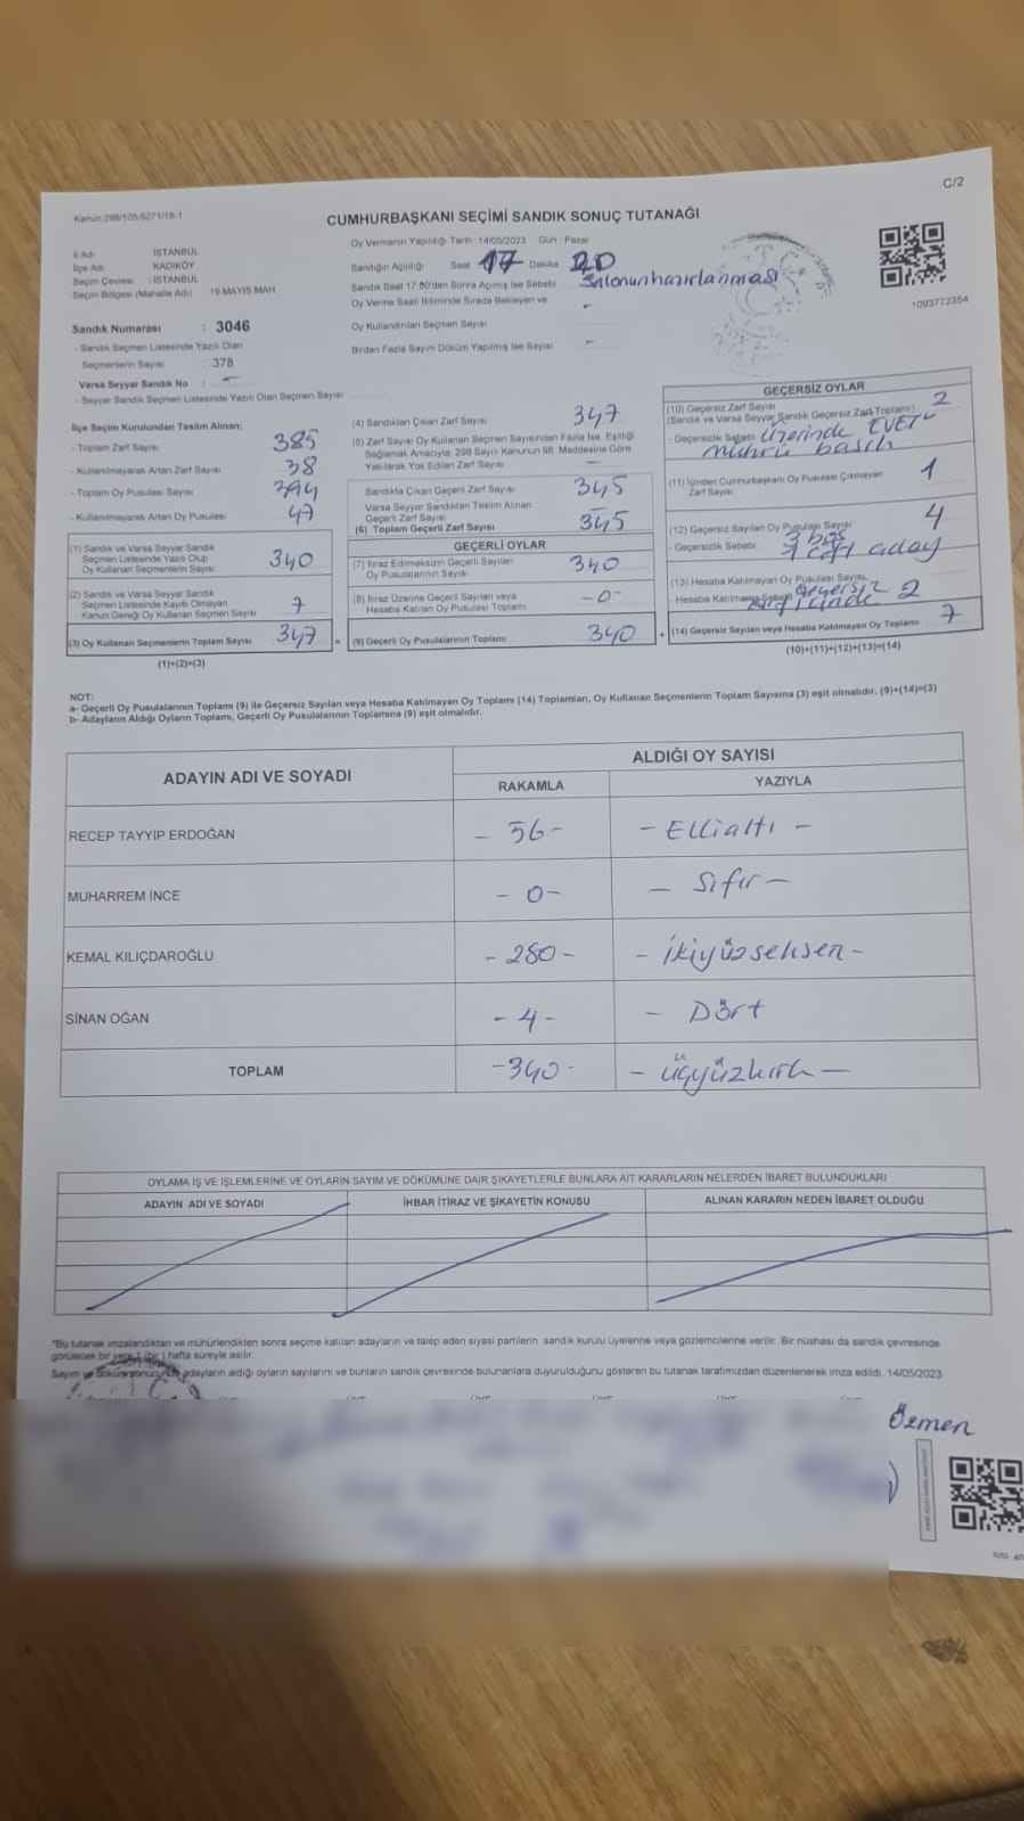 C/2
Kanun:298/105-6271/18-1
CUMHURBAŞKANI SEÇİMİ SANDIK SONUÇ TUTANAĞI
İl Adı : İSTANBUL
İlçe Adı : KADIKÖY
Seçim Çevresi : İSTANBUL
Seçim Bölgesi (Mahalle Adı) : 19 MAYIS MAH.
Sandık Numarası : 3046
- Sandık Seçmen Listesinde Yazılı Olan
Seçmenlerin Sayısı : 378
Varsa Seyyar Sandık No : -
- Seyyar Sandık Seçmen Listesinde Yazılı Olan Seçmen Sayısı
Oy Vermenin Yapıldığı Tarih : 14/05/2023 Gün : Pazar
Sandığın Açıldığı Saat 17 Dakika 20
Sandık Saat 17:00'den Sonra Açılmış İse Sebebi Salonun hazırlanması
Oy Verme Saati Bitiminde Sırada Bekleyen ve -
Oy Kullandırılan Seçmen Sayısı
Birden Fazla Sayım Döküm Yapılmış İse Sayısı -
1093772354
İlçe Seçim Kurulundan Teslim Alınan;
- Toplam Zarf Sayısı 385
- Kullanılmayarak Artan Zarf Sayısı 38
- Toplam Oy Pusulası Sayısı 394
- Kullanılmayarak Artan Oy Pusulası 47
(1) Sandık ve Varsa Seyyar Sandık
Seçmen Listesinde Yazılı Olup
Oy Kullanan Seçmenlerin Sayısı 340
(2) Sandık ve Varsa Seyyar Sandık
Seçmen Listesinde Kayıtlı Olmayan
Kanun Gereği Oy Kullanan Seçmen Sayısı 7
(3) Oy Kullanan Seçmenlerin Toplam Sayısı 347 =
(1)+(2)=(3)
(4) Sandıktan Çıkan Zarf Sayısı 347
(5) Zarf Sayısı Oy Kullanan Seçmen Sayısından Fazla İse, Eşitliği
Sağlamak Amacıyla, 298 Sayılı Kanunun 98. Maddesine Göre
Yakılarak Yok Edilen Zarf Sayısı -
Sandıkta Çıkan Geçerli Zarf Sayısı 345
Varsa Seyyar Sandıktan Teslim Alınan
Geçerli Zarf Sayısı
(6) Toplam Geçerli Zarf Sayısı 345
GEÇERLİ OYLAR
(7) İtiraz Edilmeksizin Geçerli Sayılan
Oy Pusulalarının Sayısı 340
(8) İtiraz Üzerine Geçerli Sayılan veya
Hesaba Katılan Oy Pusulası Toplamı -0-
(9) Geçerli Oy Pusulalarının Toplamı 340 +
GEÇERSİZ OYLAR
(10) Geçersiz Zarf Sayısı 2
(Sandık ve Varsa Seyyar Sandık Geçersiz Zarf Toplamı)
- Geçersizlik Sebebi Üzerinde EVET
mührü basılı
(11) İçinden Cumhurbaşkanı Oy Pusulası Çıkmayan
Zarf Sayısı 1
(12) Geçersiz Sayılan Oy Pusulası Sayısı 4
- Geçersizlik Sebebi 3 boş
1 çift aday
(13) Hesaba Katılmayan Oy Pusulası Sayısı
Hesaba Katılmama Sebebi geçersiz 2
zarf içinde
(14) Geçersiz Sayılan veya Hesaba Katılmayan Oy Toplamı 7
(10)+(11)+(12)+(13)=(14)
NOT:
a- Geçerli Oy Pusulalarının Toplamı (9) ile Geçersiz Sayılan veya Hesaba Katılmayan Oy Toplamı (14) Toplamları, Oy Kullanan Seçmenlerin Toplam Sayısına (3) eşit olmalıdır. (9)+(14)=(3)
b- Adayların Aldığı Oyların Toplamı, Geçerli Oy Pusulalarının Toplamına (9) eşit olmalıdır.
ADAYIN ADI VE SOYADI
ALDIĞI OY SAYISI
RAKAMLA YAZIYLA
RECEP TAYYİP ERDOĞAN - 56 - - Ellialtı -
MUHARREM İNCE - 0 - - Sıfır -
KEMAL KILIÇDAROĞLU - 280 - - İkiyüzseksen -
SİNAN OĞAN - 4 - - Dört
TOPLAM - 340 - - üçyüzkırk -
OYLAMA İŞ VE İŞLEMLERİNE VE OYLARIN SAYIM VE DÖKÜMÜNE DAİR ŞİKAYETLERLE BUNLARA AİT KARARLARIN NELERDEN İBARET BULUNDUKLARI
ADAYIN ADI VE SOYADI İHBAR İTİRAZ VE ŞİKAYETİN KONUSU ALINAN KARARIN NEDEN İBARET OLDUĞU
*Bu tutanak imzalandıktan ve mühürlendikten sonra seçime katılan adayların ve talep eden siyasi partilerin, sandık kurulu üyelerine veya gözlemcilerine verilir. Bir nüshası da sandık çevresinde
görülecek bir yere 1 (bir) hafta süreyle asılır.
Sayım ve döküm sonucunda adayların aldığı oyların sayılarını ve bunların sandık çevresinde bulunanlara duyurulduğunu gösteren bu tutanak tarafımızdan düzenlenerek imza edildi. 14/05/2023
Özmen